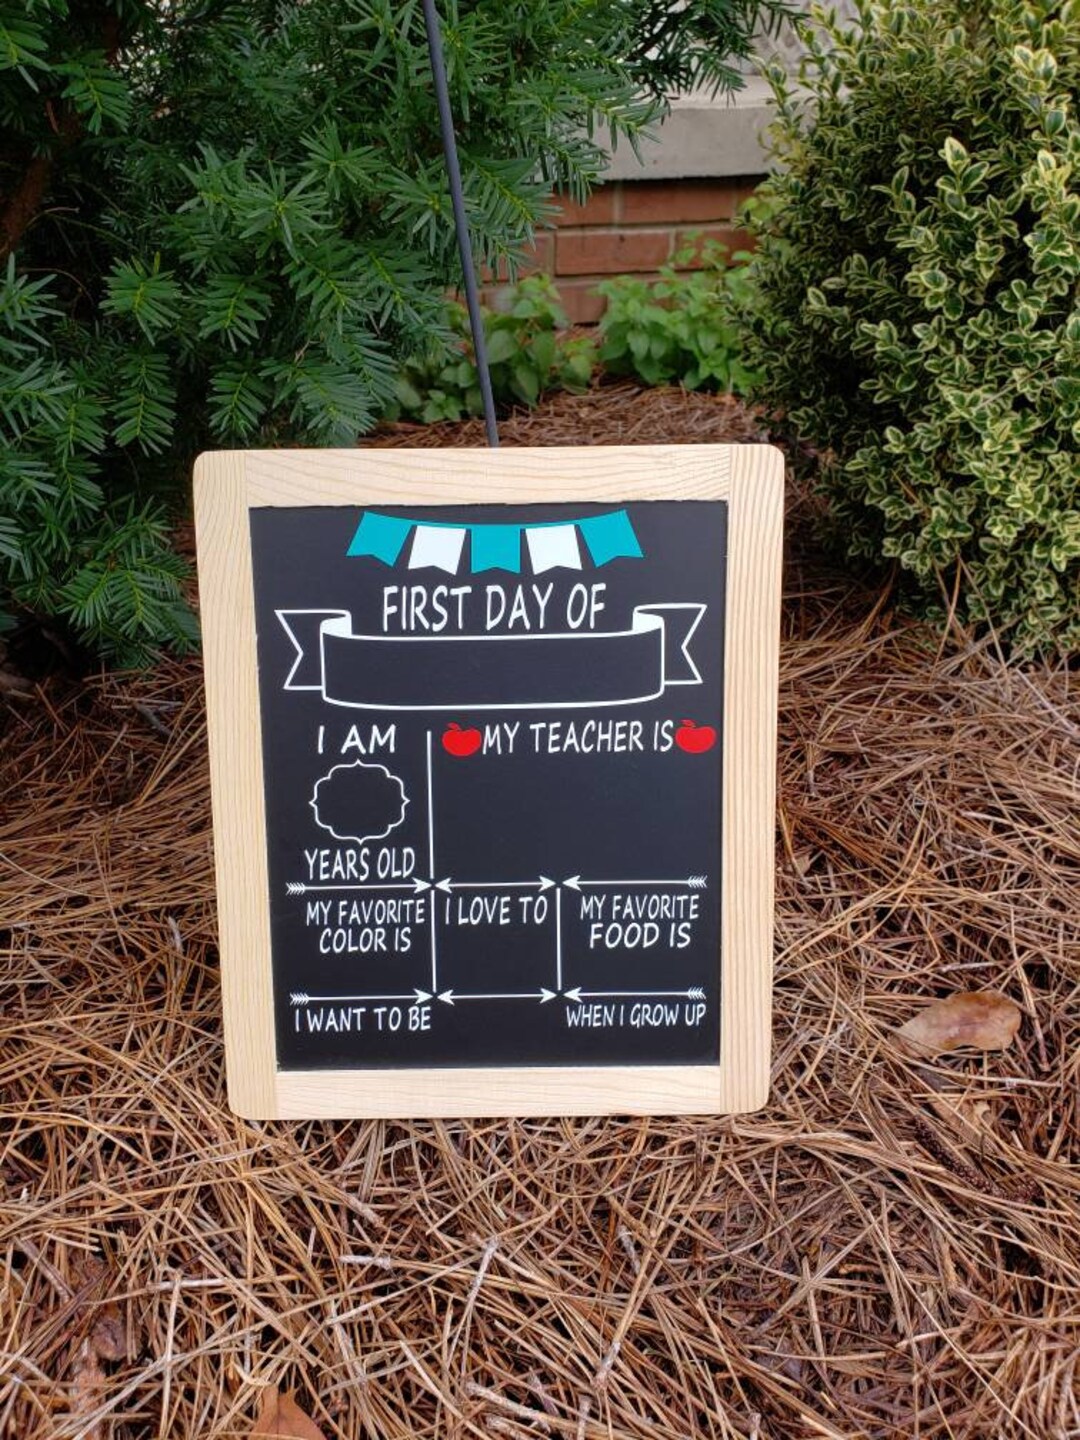 FIRST DAY OF
I AM
MY TEACHER IS
YEARS OLD
MY FAVORITE
COLOR IS
I LOVE TO
MY FAVORITE
FOOD IS
I WANT TO BE
WHEN I GROW UP